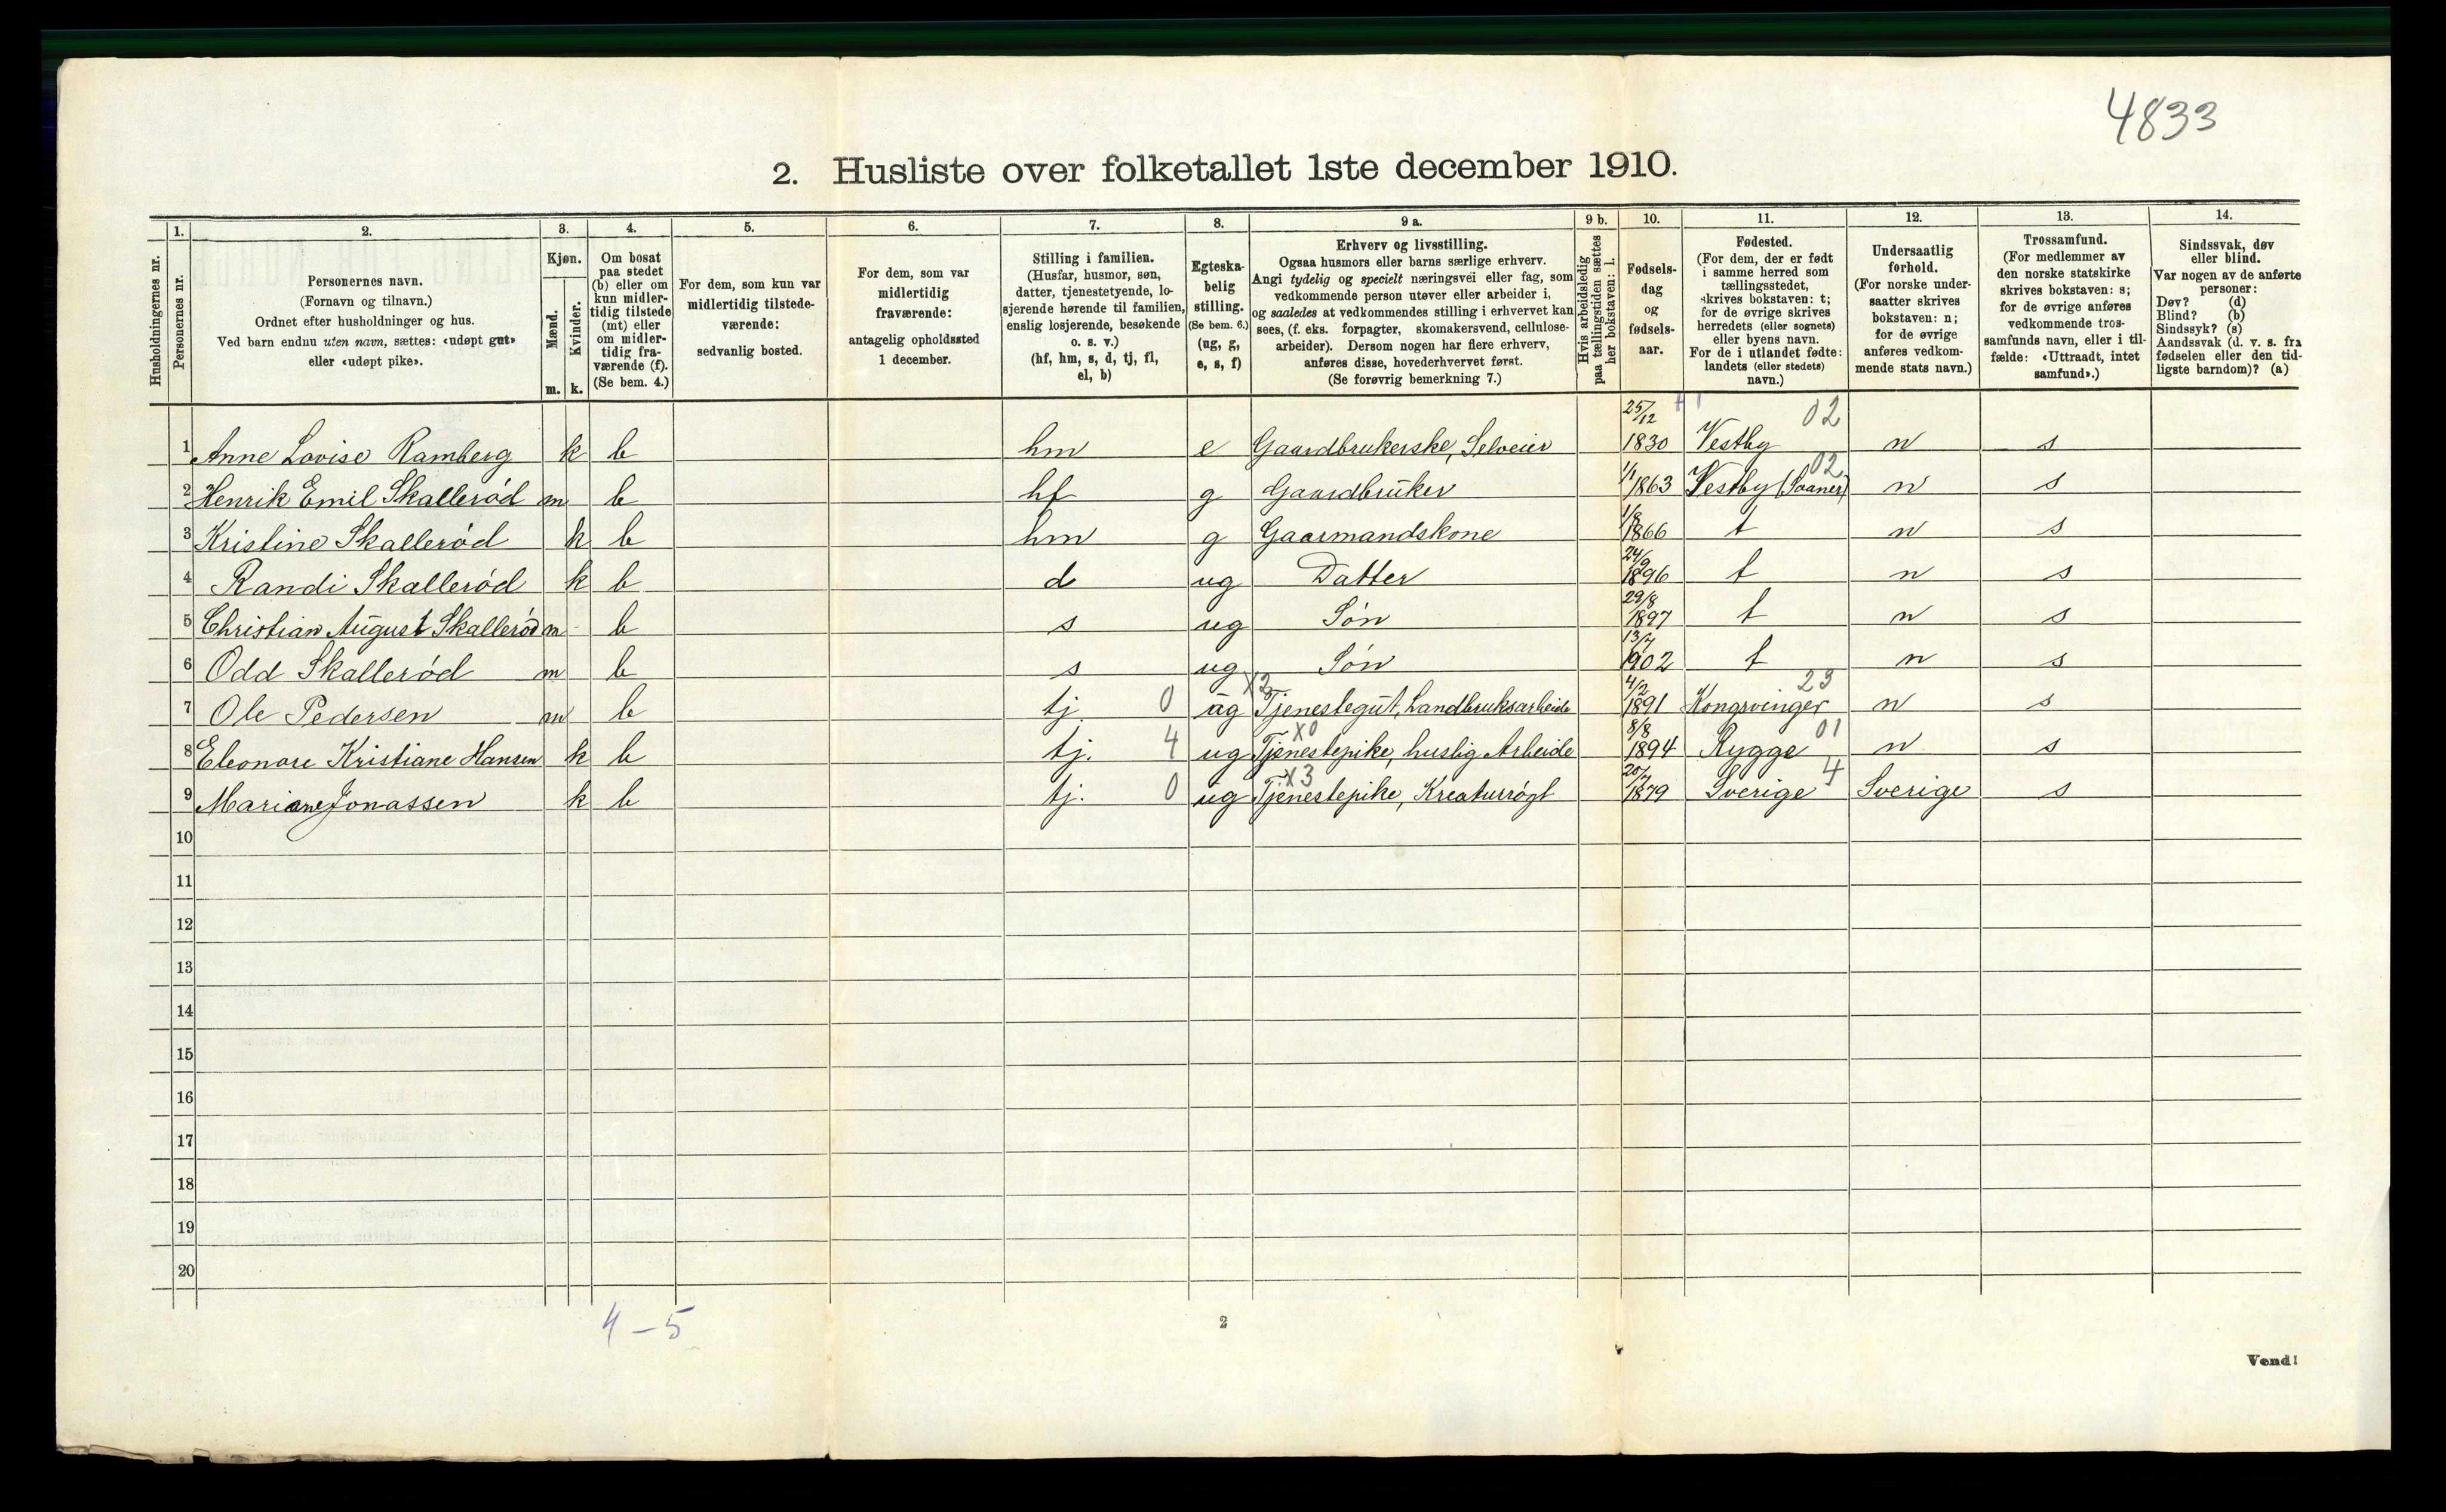 4833
2. Husliste over folketallet 1ste december 1910.
Husholdningernes nr.
1.
Personernes nr.
2.
Personernes navn.
(Fornavn og tilnavn.)
Ordnet efter husholdninger og hus.
Ved barn endnu uten navn, sættes: «udøpt gut»
eller «udøpt pike».
3.
Kjøn.
Mænd.
Kvinder.
m. k.
4.
Om bosat
paa stedet
(b) eller om
kun midler-
tidig tilstede
(mt) eller
om midler-
tidig fra-
værende (f).
(Se bem. 4.)
5.
For dem, som kun var
midlertidig tilstede-
værende:
sedvanlig bosted.
6.
For dem, som var
midlertidig
fraværende:
antagelig opholdssted
1 december.
7.
Stilling i familien.
(Husfar, husmor, søn,
datter, tjenestetyende, lo-
sjerende hørende til familien,
enslig losjerende, besøkende
o. s. v.)
(hf, hm, s, d, tj, fl,
el, b)
8.
Egteska-
belig
stilling.
(Se bem. 6.)
(ug, g,
e, s, f)
9 a.
Erhverv og livsstilling.
Ogsaa husmors eller barns særlige erhverv.
Angi tydelig og specielt næringsvei eller fag, som
vedkommende person utøver eller arbeider i,
og saaledes at vedkommendes stilling i erhvervet kan
sees, (f. eks. forpagter, skomakersvend, cellulose-
arbeider). Dersom nogen har flere erhverv,
anføres disse, hovederhvervet først.
(Se forøvrig bemerkning 7.)
9 b.
Hvis arbeidsledig
paa tællingstiden sættes
her bokstaven: l.
10.
Fødsels-
dag
og
fødsels-
aar.
11.
Fødested.
(For dem, der er født
i samme herred som
tællingsstedet,
skrives bokstaven: t;
for de øvrige skrives
herredets (eller sognets)
eller byens navn.
For de i utlandet fødte:
landets (eller stedets)
navn.)
12.
Undersaatlig
forhold.
(For norske under-
saatter skrives
bokstaven: n;
for de øvrige
anføres vedkom-
mende stats navn.)
13.
Trossamfund.
(For medlemmer av
den norske statskirke
skrives bokstaven: s;
for de øvrige anføres
vedkommende tros-
samfunds navn, eller i til-
fælde: «Uttraadt, intet
samfund».)
14.
Sindssvak, døv
eller blind.
Var nogen av de anførte
personer:
Døv? (d)
Blind? (b)
Sindssyk? (s)
Aandssvak (d. v. s. fra
fødselen eller den tid-
ligste barndom)? (a)
25/12 02
1 Anne Lovise Ramberg k b hm e Gaardbrukerske, Selveier 1830 Vestby n s
1/1 02
2 Henrik Emil Skallerød m b hf g Gaardbruker 1863 Vestby (Saaner) n s
1/8
3 Kristine Skallerød k b hm g Gaarmandskone 1866 t n s
24/9
4 Randi Skallerød k b d ug Datter 1896 t n s
29/8
5 Christian August Skallerød m b s ug Søn 1897 t n s
13/7
6 Odd Skallerød m b s ug Søn 1902 t n s
X2 4/2 23
7 Ole Pedersen m b tj 0 ug Tjenestegut, Landbruksarbeide 1891 Kongsvinger n s
X0 8/8 01
8 Eleonore Kristiane Hansen k b tj. 4 ug Tjenestepike, huslig Arbeide 1894 Rygge n s
X3 20/7 4
9 Mariane Jonassen k b tj. 0 ug Tjenestepike, Kreaturrøgt 1879 Sverige Sverige s
10
11
12
13
14
15
16
17
18
19
20
4 – 5
2
Vend!